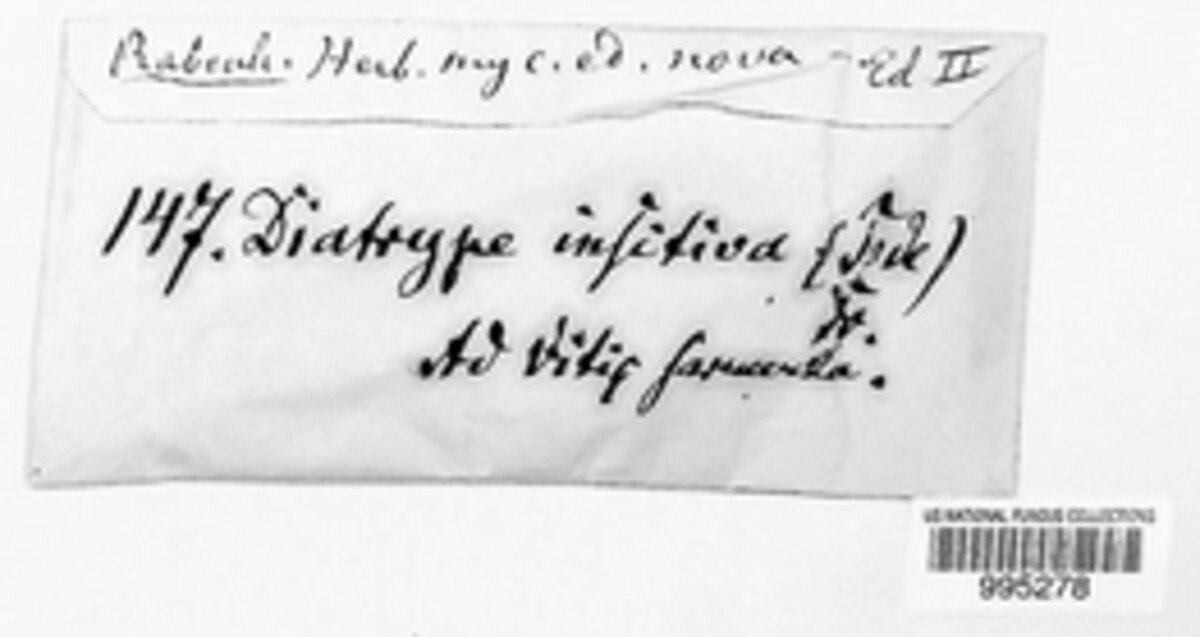 Rabenh. Herb. myc. ed. nova - Ed II
147. Diatrype insitiva (Tode)
Fr.
Ad Vitis sarmenta.
US NATIONAL FUNGUS COLLECTIONS
995278